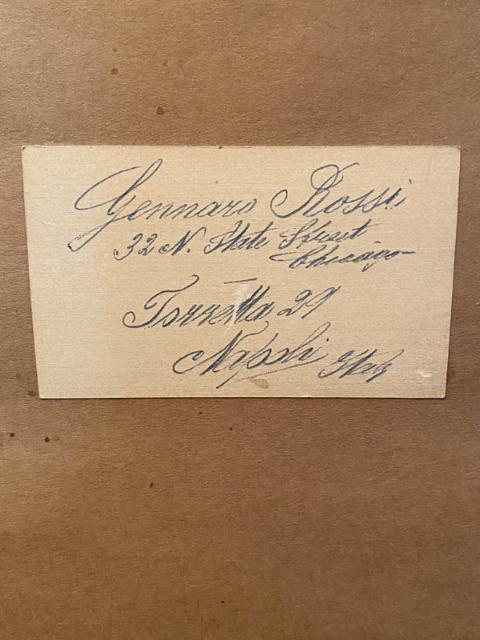 Gennaro Rossi
32 N. State Street
Chicago
Torretta 29
Napoli Italy